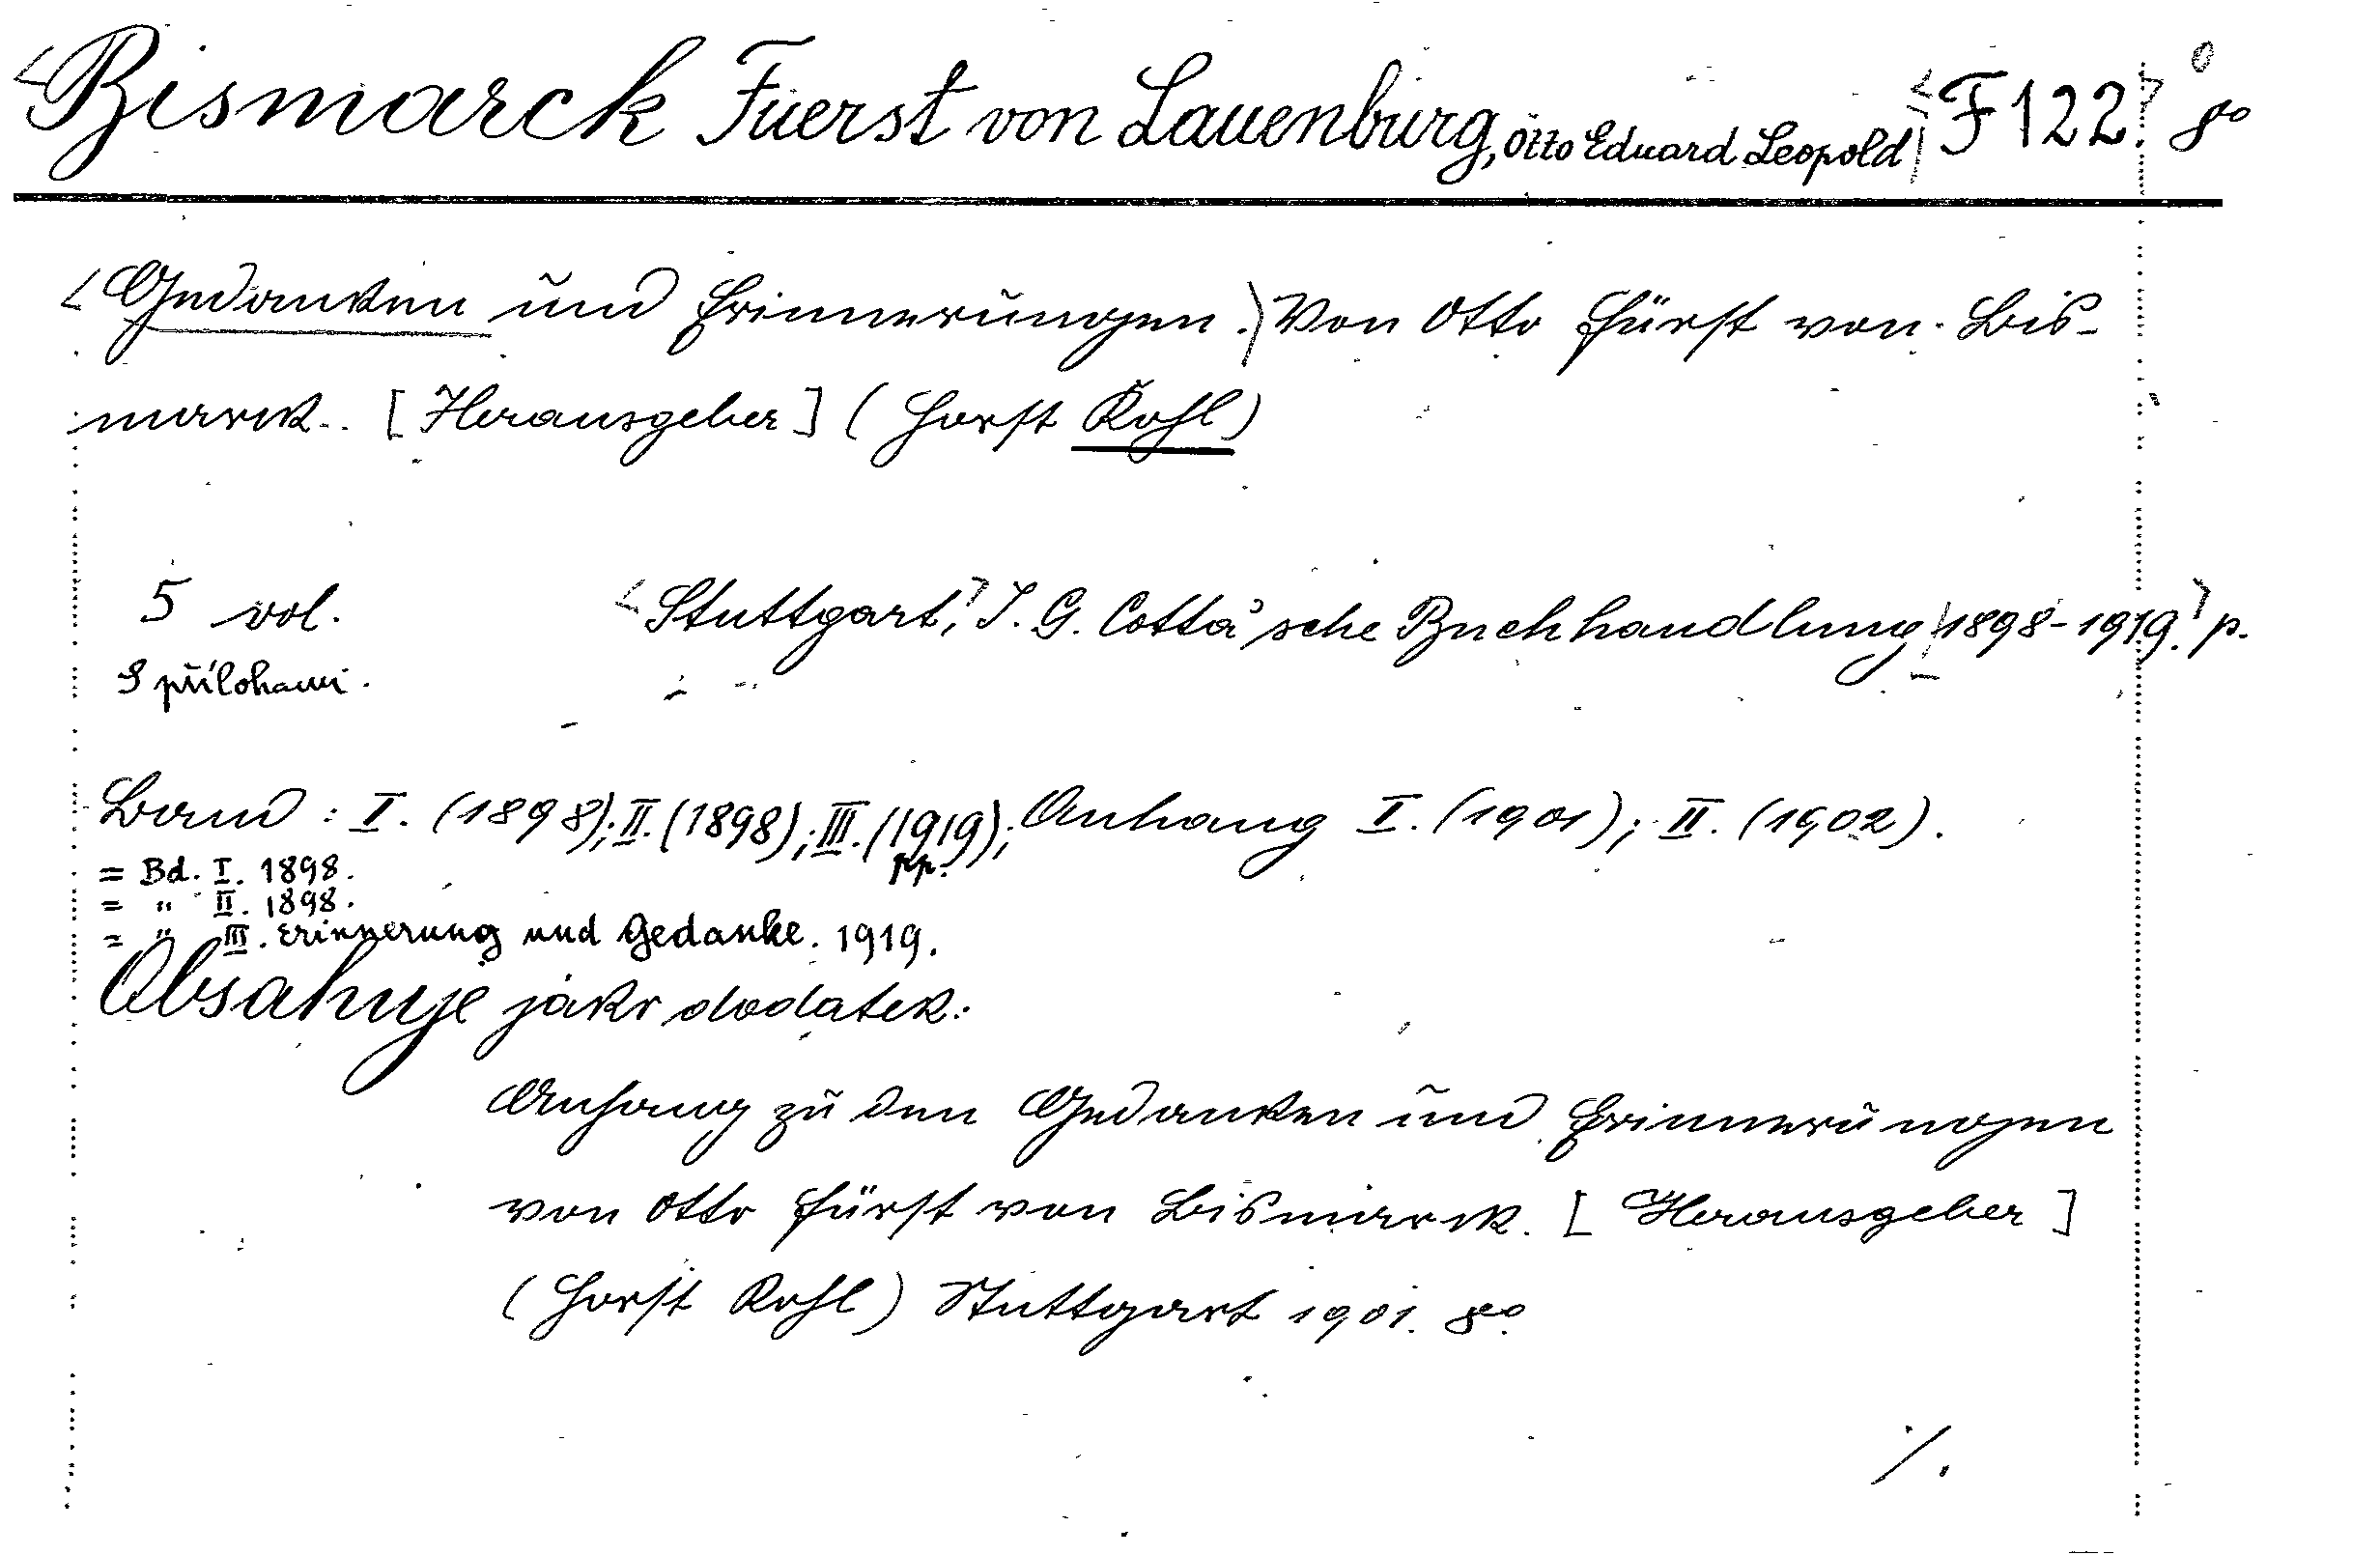 <Bismarck Fuerst von Lauenburg, Otto Eduard Leopold> <F 122.> 8°
<Gedanken und Erinnerungen.> Von Otto Fürst von Bis-
marck. [Herausgeber] (Horst Kohl)
5 vol. <Stuttgart,> J. G. Cotta'sche Buchhandlung <1898-1919.> p.
S přílohami.
Band: I. (1898); II. (1898); III. (1919); Anhang I. (1901); II. (1902).
pp.
= Bd. I. 1898.
= " II. 1898.
= " III. Erinnerung und Gedanke. 1919.
Obsahuje jako dodatek:
Anhang zu den Gedanken und Erinnerungen
von Otto Fürst von Bismarck. [Herausgeber]
(Horst Kohl) Stuttgart 1901. 8°.
/.